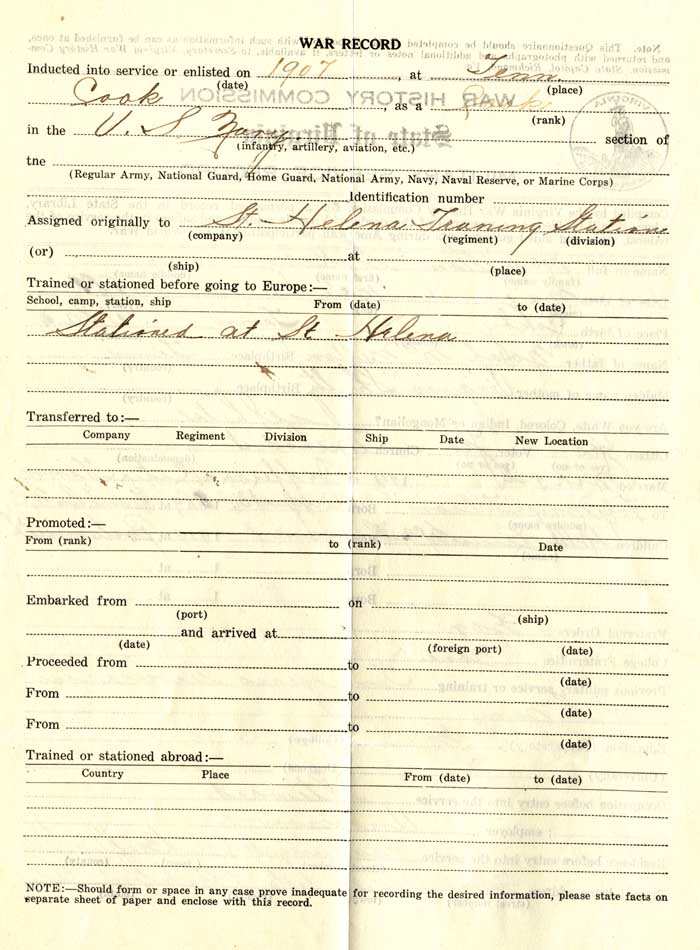 WAR RECORD
Inducted into service or enlisted on 1907, at Tenn
(date) (place)
Cook, as a Cook
(rank)
in the U. S Navy section of
(infantry, artillery, aviation, etc.)
tne
(Regular Army, National Guard, Home Guard, National Army, Navy, Naval Reserve, or Marine Corps)
Identification number
Assigned originally to St. Helena Traning Station
(company) (regiment) (division)
(or) at
(ship) (place)
Trained or stationed before going to Europe:—
School, camp, station, ship From (date) to (date)
Stationed at St Helena
Transferred to:—
Company Regiment Division Ship Date New Location
Promoted:—
From (rank) to (rank) Date
Embarked from on
(port) (ship)
and arrived at
(date) (foreign port) (date)
Proceeded from to
(date)
From to
(date)
From to
(date)
Trained or stationed abroad:—
Country Place From (date) to (date)
NOTE:—Should form or space in any case prove inadequate for recording the desired information, please state facts on
separate sheet of paper and enclose with this record.